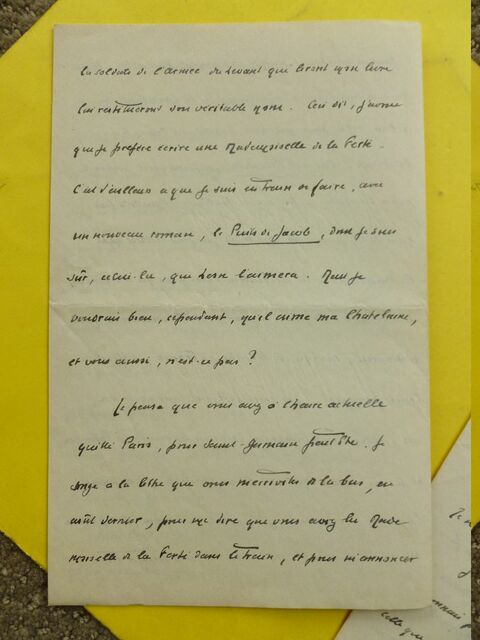 les soldats de l'armée du Levant qui liront mon livre
lui restitueront son véritable nom. Ceci dit, j'avoue
que je préfère écrire une Mademoiselle de la Ferté.
C'est d'ailleurs ce que je suis en train de faire, avec
un nouveau roman, le Puits de Jacob, dont je suis
sûr, celui-là, que l'aimera. Mais je
voudrais bien, cependant, qu'il aime ma Châtelaine,
et vous aussi, n'est-ce pas ?
Je pense que vous avez à l'heure actuelle
quitté Paris, pour Saint-Germain peut-être. Je
songe à la lettre que vous m'écrivîtes de là-bas, en
août dernier, pour me dire que vous avez lu Made
moiselle de la Ferté dans le train, et pour m'annoncer